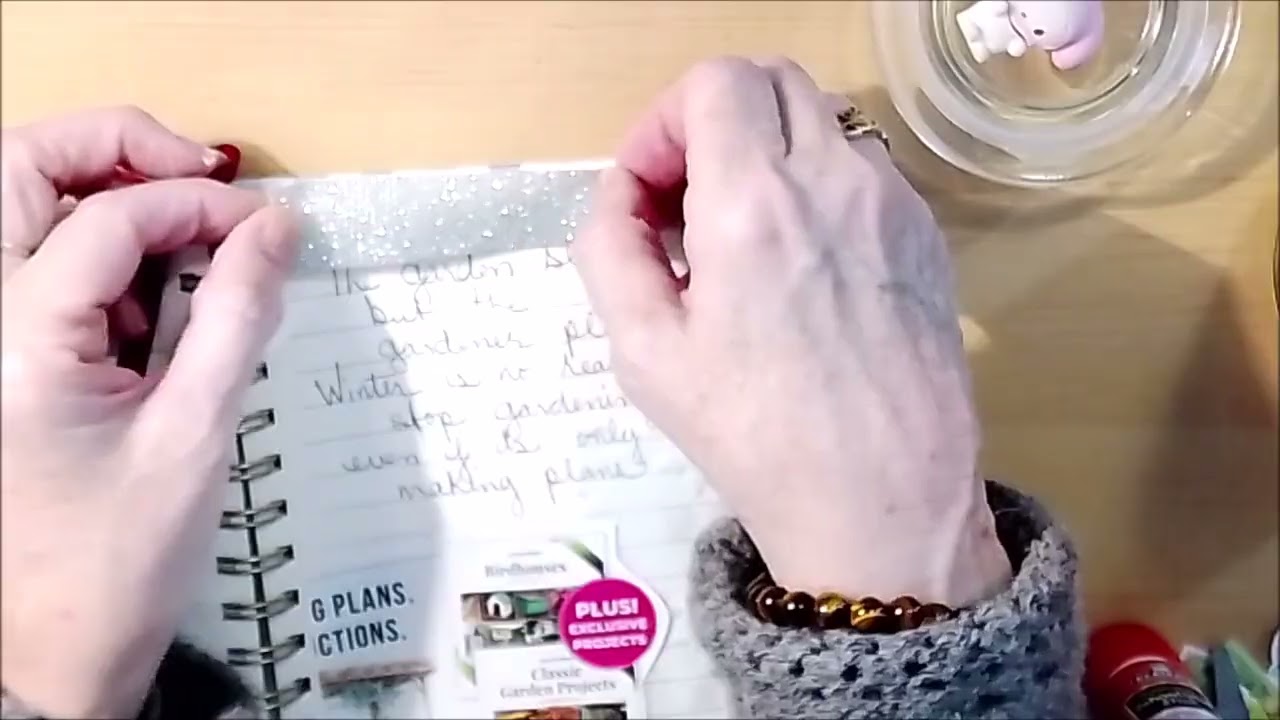 The garden
but the
gardener
Winter is no
stop
even if is only
making plans
G PLANS.
CTIONS.
Birdhouses
PLUS!
EXCLUSIVE
PROJECTS
Classic
Garden Projects